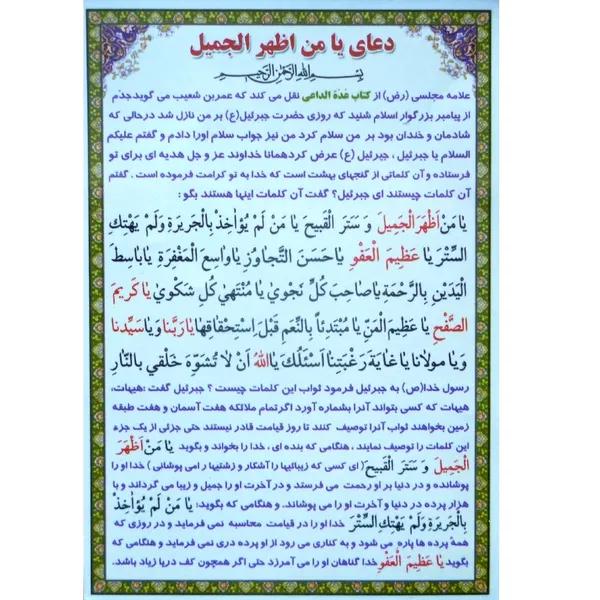 دعای یا من اظهر الجمیل
بسم الله الرحمن الرحیم
علامه مجلسی (رض) از کتاب عُدة الداعی نقل می کند که عمربن شعیب می گویدجدّم
از پیامبر بزرگوار اسلام شنید که روزی حضرت جبرئیل(ع) بر من نازل شد درحالی که
شادمان و خندان بود بر من سلام کرد من نیز جواب سلام اورا دادم و گفتم علیکم
السلام یا جبرئیل ، جبرئیل (ع) عرض کردهمانا خداوند عز و جل هدیه ای برای تو
فرستاده و آن کلماتی از گنجهای بهشت است که خدا به تو کرامت فرموده است . گفتم
آن کلمات چیستند ای جبرئیل؟ گفت آن کلمات اینها هستند بگو :
یا مَنْ اَظْهَرَ الْجَمیلَ وَ سَتَرَ الْقَبیحَ یا مَنْ لَمْ یُؤاخِذْ بِالْجَریرَةِ وَلَمْ یَهْتِكِ
السِّتْرَ یا عَظیمَ الْعَفْوِ یاحَسَنَ التَّجاوُزِ یاواسِعَ الْمَغْفِرَةِ یاباسِطَ
الْیَدَیْنِ بِالرَّحْمَةِ یاصاحِبَ كُلِّ نَجْوي یا مُنْتَهي كُلِّ شَكْوي یا كَریمَ
الصَّفْحِ یا عَظیمَ الْمَنِّ یا مُبْتَدِئاً بِالنِّعَمِ قَبْلَ اسْتِحْقاقِها یا رَبَّنا وَیا سَیِّدنا
وَیا مولانا یا غایَةَ رَغْبَتِنا اَسْئَلُكَ یا اللهُ اَنْ لا تُشَوِّهَ خَلْقي بِالنّارِ
رسول خدا(ص) به جبرئیل فرمود ثواب این کلمات چیست ؟ جبرئیل گفت :هیهات،
هیهات که کسی بتواند آنرا بشماره آورد اگرتمام ملائکه هفت آسمان و هفت طبقه
زمین بخواهند ثواب آنرا توصیف کنند تا روز قیامت قادر نیستند حتی جزئی از یک جزء
این کلمات را توصیف نمایند ، هنگامی که بنده ای ، خدا را بخواند و بگوید یا مَنْ اَظْهَرَ
الْجَمیلَ وَ سَتَرَ الْقَبیحَ( ای کسی که زیبائیها را آشکار و زشتیها رامی پوشانی ) خدا او را
پوشانده و در دنیا بر او رحمت می فرستد و در آخرت او را جمیل و زیبا می گرداند و با
هزار پرده در دنیا و آخرت او را می پوشاند. و هنگامی که بگوید: یا مَنْ لَمْ یُؤاخِذْ
بِالْجَریرَةِ وَلَمْ یَهْتِكِ السِّتْرَ خدا او را در قیامت محاسبه نمی فرماید و در روزی که
همهٔ پرده ها پاره می شود و به کناری می رود از او پرده دری نمی فرماید و هنگامی که
بگوید یا عَظیمَ الْعَفْوِ خدا گناهان او را می آمرزد حتی اگر همچون کف دریا زیاد باشد.